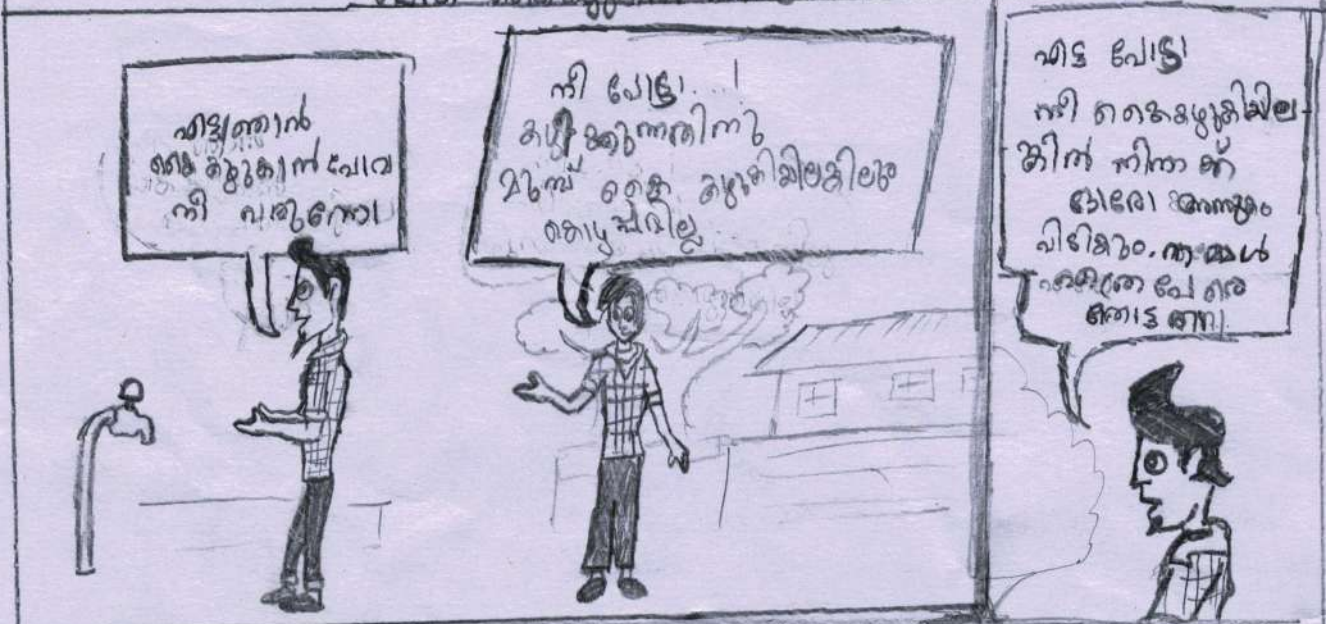 എടാ ഞാൻ
കൈ കഴുകാൻ പോവ
നീ വരുന്നോ
നീ പോടാ..!
കഴിക്കുന്നതിനു
മുമ്പ് കൈ കഴുകിയിലങ്കിലും
കൊഴപ്പമില്ല
എട പോടാ
നീ കൈകഴുകിയില
ങ്കിൽ നിനക്ക്
ഓരോ അസുഖം
പിടിക്കും. നമ്മൾ
എത്ര പേരെ
തൊട്ടതാണ